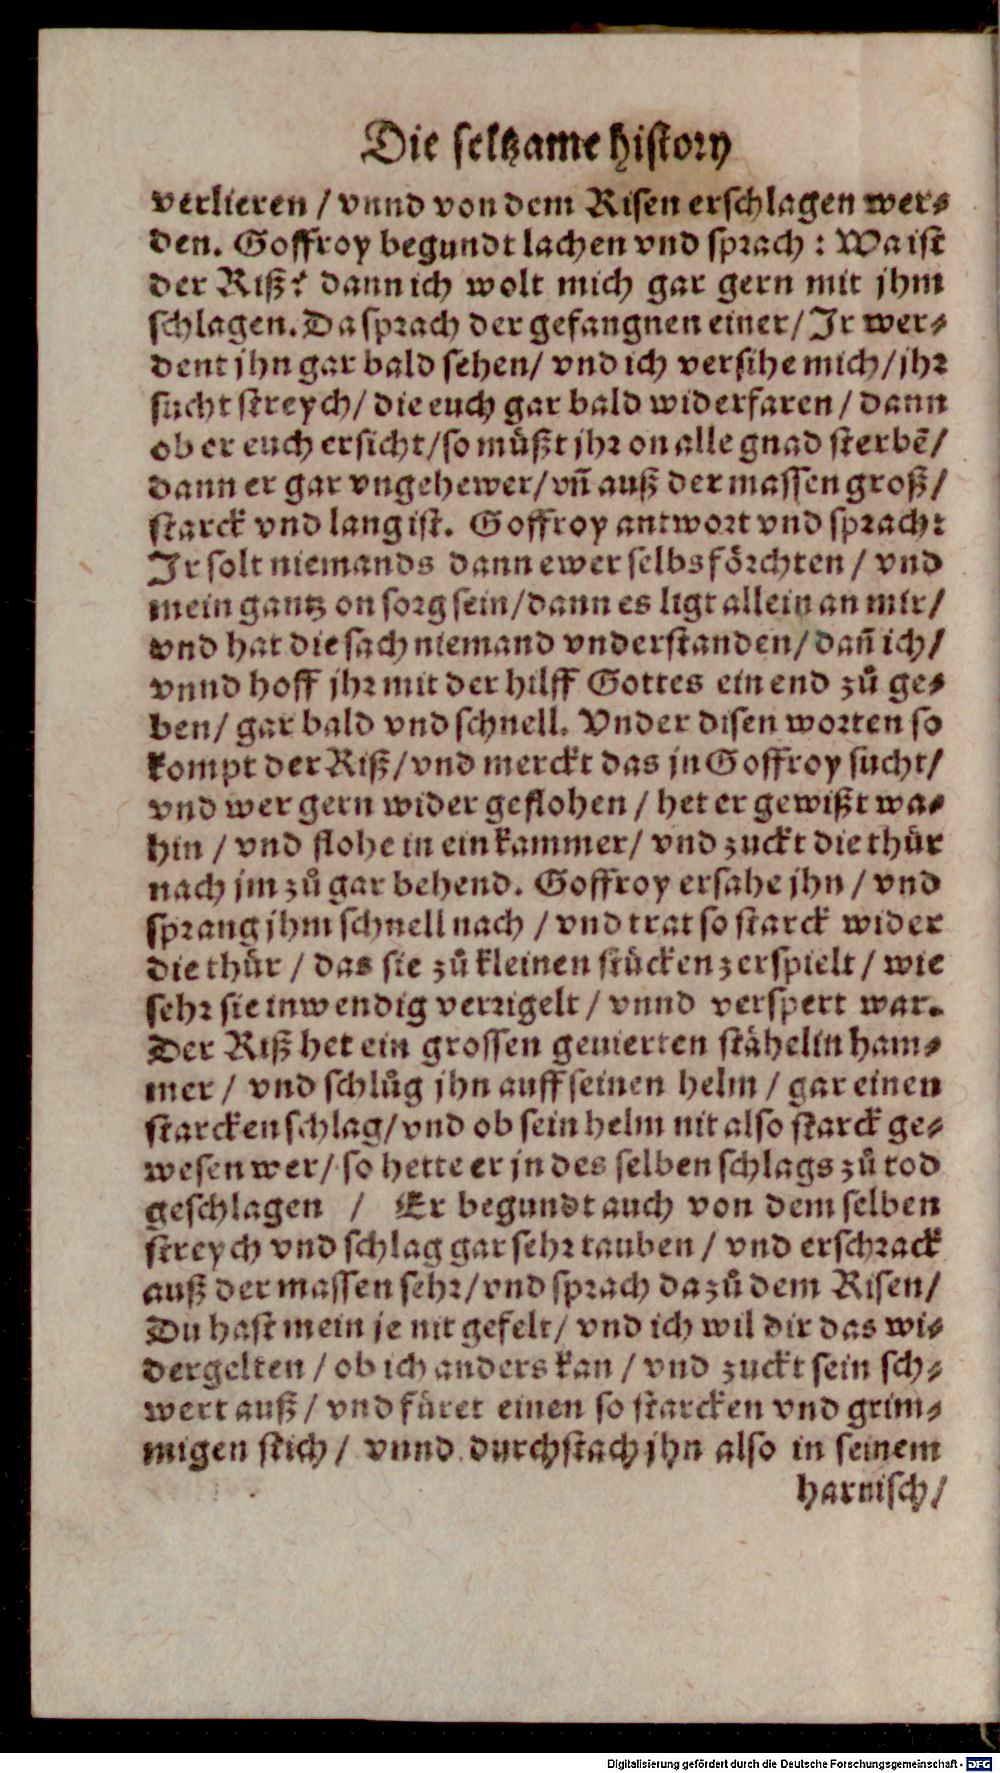 Die seltzame history
verlieren / vnnd von dem Risen erschlagen wer⸗
den. Goffroy begundt lachen vnd sprach : Wa ist
der Riß? dann ich wolt mich gar gern mit jhm
schlagen. Da sprach der gefangnen einer / Ir wer⸗
dent jhn gar bald sehen / vnd ich versihe mich / jhr
sucht streych / die euch gar bald widerfaren / dann
ob er euch ersicht / so müßt jhr on alle gnad sterbẽ /
dann er gar vngehewer / vñ auß der massen groß /
starck vnd lang ist. Goffroy antwort vnd sprach:
Ir solt niemands dann ewer selbs förchten / vnd
mein gantz on sorg sein / dann es ligt allein an mir /
vnd hat die sach niemand vnderstanden / dañ ich /
vnnd hoff jhr mit der hilff Gottes ein end zů ge⸗
ben / gar bald vnd schnell. Vnder disen worten so
kompt der Riß / vnd merckt das jn Goffroy sucht /
vnd wer gern wider geflohen / het er gewißt wa⸗
hin / vnd flohe in ein kammer / vnd zuckt die thür
nach jm zů gar behend. Goffroy ersahe jhn / vnd
sprang jhm schnell nach / vnd trat so starck wider
die thür / das sie zů kleinen stücken zerspielt / wie
sehr sie inwendig verrigelt / vnnd verspert war.
Der Riß het ein grossen geuierten stähelin ham⸗
mer / vnd schlůg jhn auff seinen helm / gar einen
starcken schlag / vnd ob sein helm nit also starck ge⸗
wesen wer / so hette er jn des selben schlags zů tod
geschlagen / Er begundt auch von dem selben
streych vnd schlag gar sehr tauben / vnd erschrack
auß der massen sehr / vnd sprach da zů dem Risen /
Du hast mein je nit gefelt / vnd ich wil dir das wi⸗
dergelten / ob ich anders kan / vnd zuckt sein sch⸗
wert auß / vnd füret einen so starcken vnd grim⸗
migen stich / vnnd durchstach jhn also in seinem
harnisch /
Digitalisierung gefördert durch die Deutsche Forschungsgemeinschaft - DFG